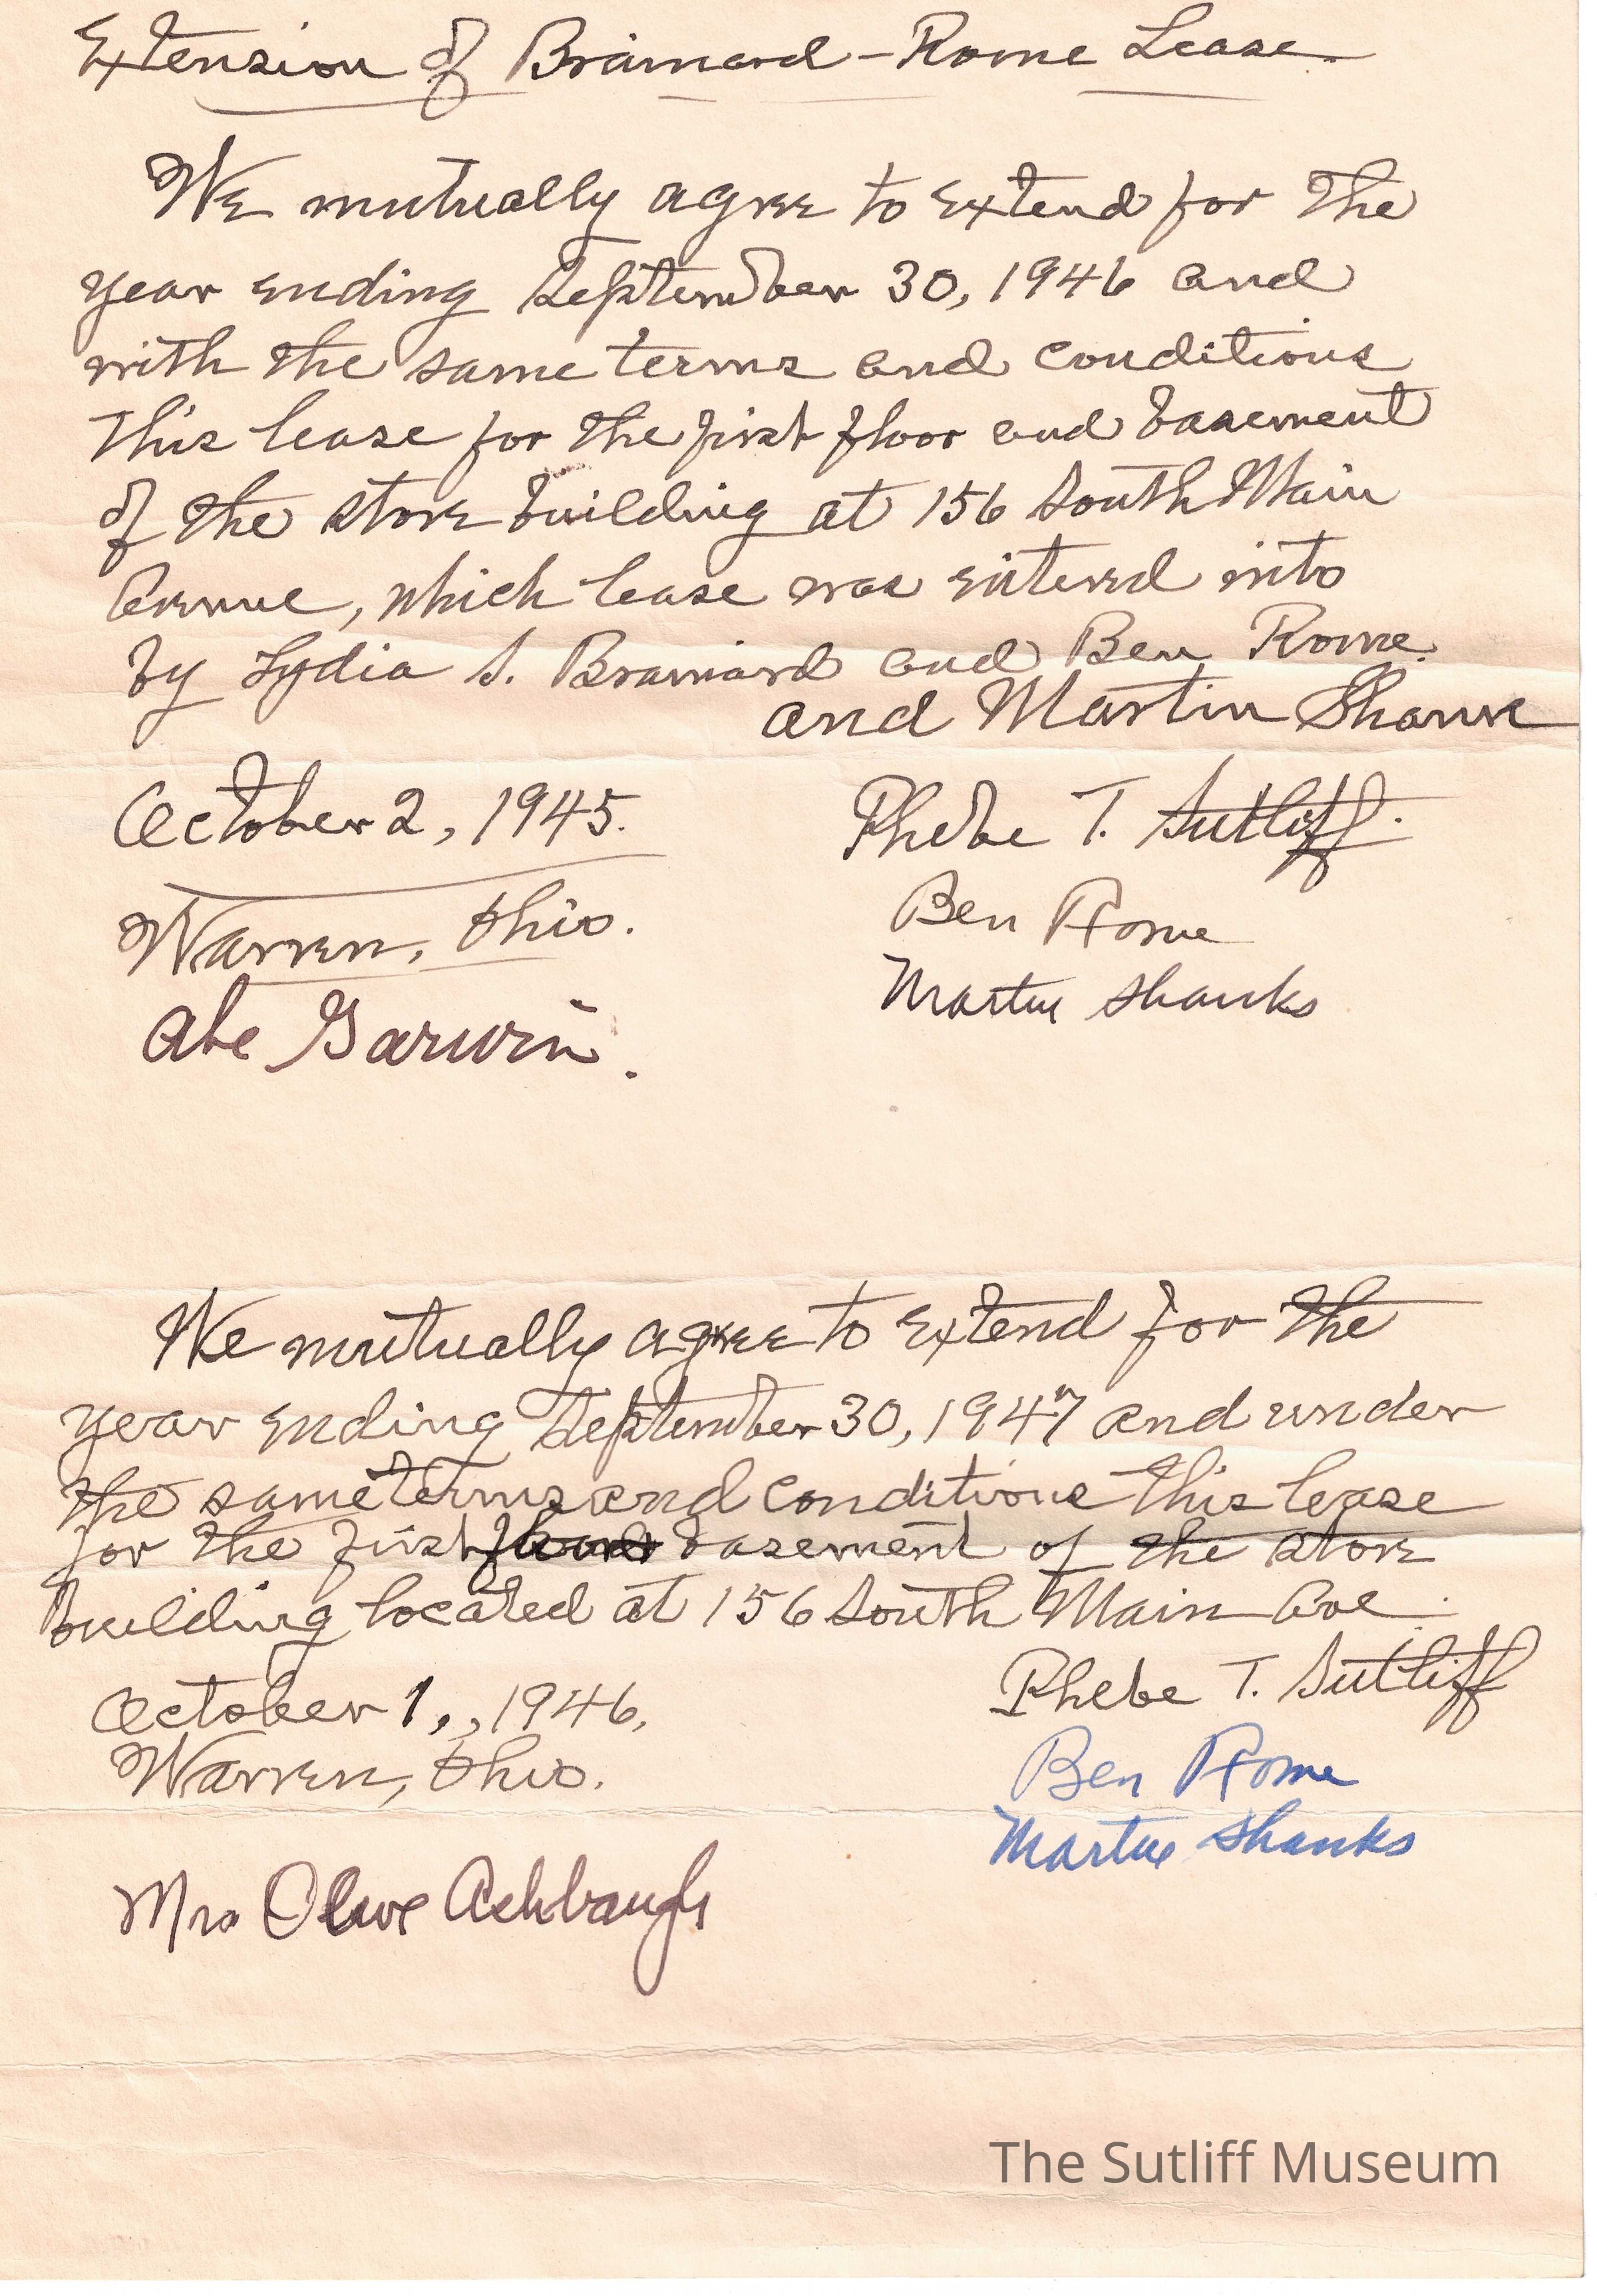 Extension of Brainard-Rome Lease.
We mutually agree to extend for the
year ending September 30, 1946 and
with the same terms and conditions
this lease for the first floor and basement
of the store building at 156 South Main
Avenue, which lease was entered into
by Lydia S. Brainard and Ben Rome.
and Martin Shank
October 2, 1945.
Phebe T. Sutliff.
Warren, Ohio.
Ben Rome
Martin Shanks
Abe Garwin.
We mutually agree to extend for the
year ending September 30, 1947 and under
the same terms and conditions this lease
for the first basement of the store
building located at 156 South Main Ave.
October 1,, 1946.
Phebe T. Sutliff
Warren, Ohio.
Ben Rome
Martin Shanks
Mrs Olive Ashbaugh
The Sutliff Museum